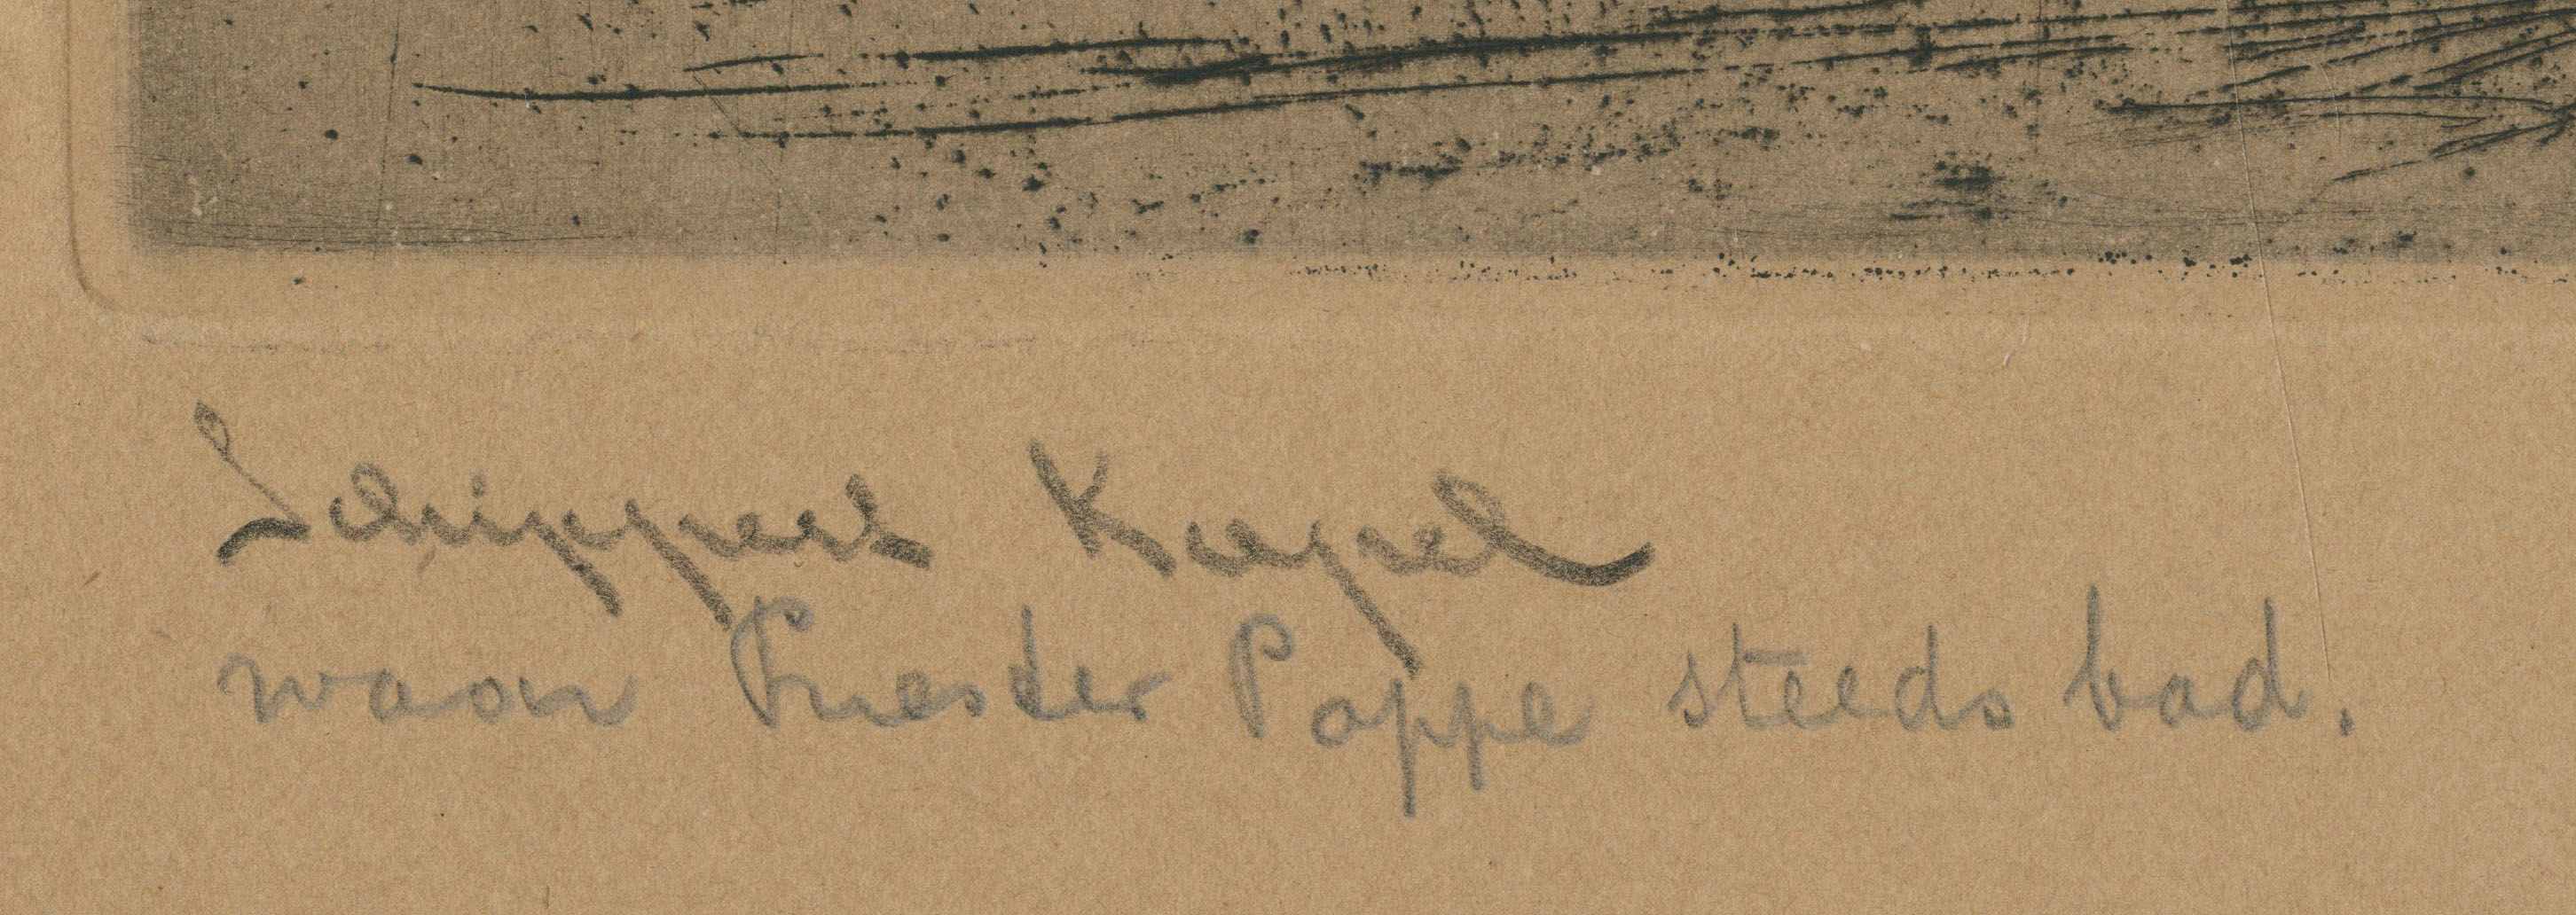 Schippers Kapel
waar Priester Poppe steeds bad.